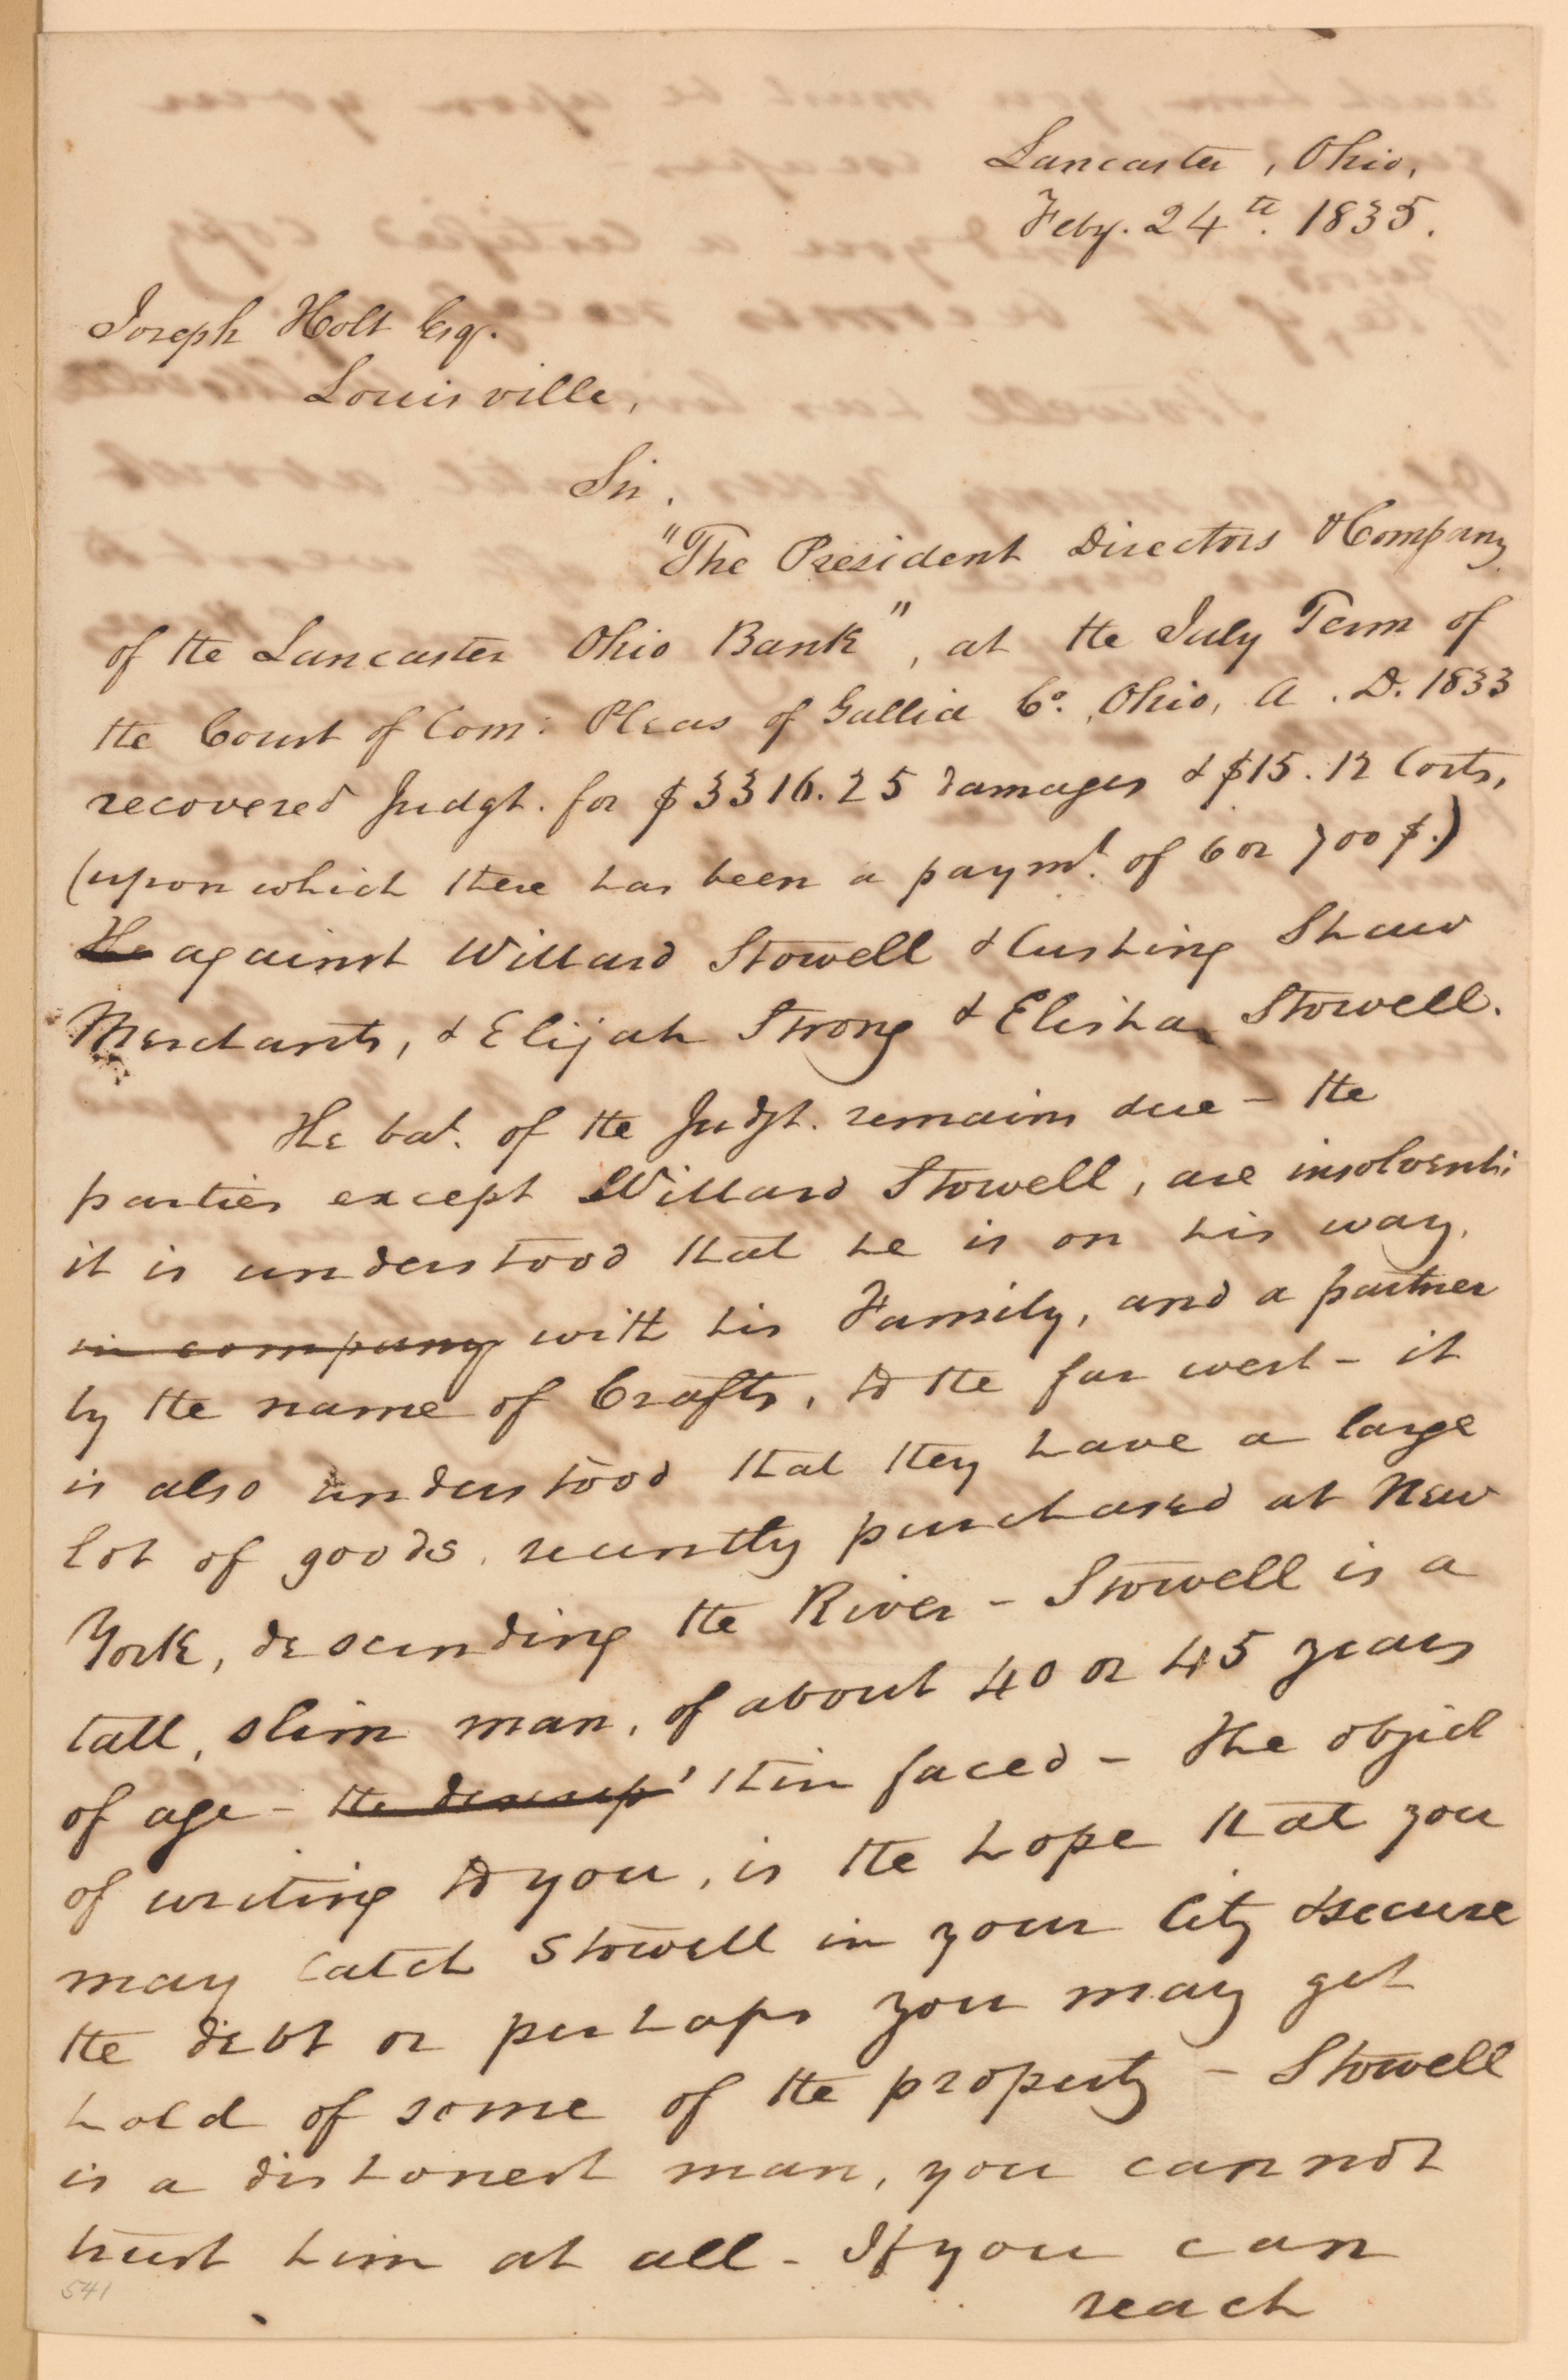 Lancaster, Ohio,
Feby. 24th. 1835.
Joseph Holt Esq.
Louisville,
Sir.
"The President Directors & Company
of the Lancaster Ohio Bank", at the July Term of
the Court of Com: Pleas of Gallia Co. Ohio, A. D. 1833
recovered Judgt. for $3316.25 damages & $15.12 Costs,
(upon which there has been a paymt. of 6 or 700 $.)
He against Willard Stowell & Cushing Shaw
Merchants, & Elijah Strong & Elisha Stowell.
The bal. of the Judgt. remains due - the
parties except Willard Stowell, are insolvent:
it is understood that he is on his way,
in company with his Family, and a partner
by the name of Crafts, to the far west - it
is also understood that they have a large
lot of goods, recently purchased at New
York, descending the River - Stowell is a
tall, slim man, of about 40 or 45 years
of age - the descrip' thin faced - The object
of writing to you, is the hope that you
may catch Stowell in your City & secure
the debt or perhaps you may get
hold of some of the property - Stowell
is a dishonest man, you cannot
trust him at all - If you can
reach
541